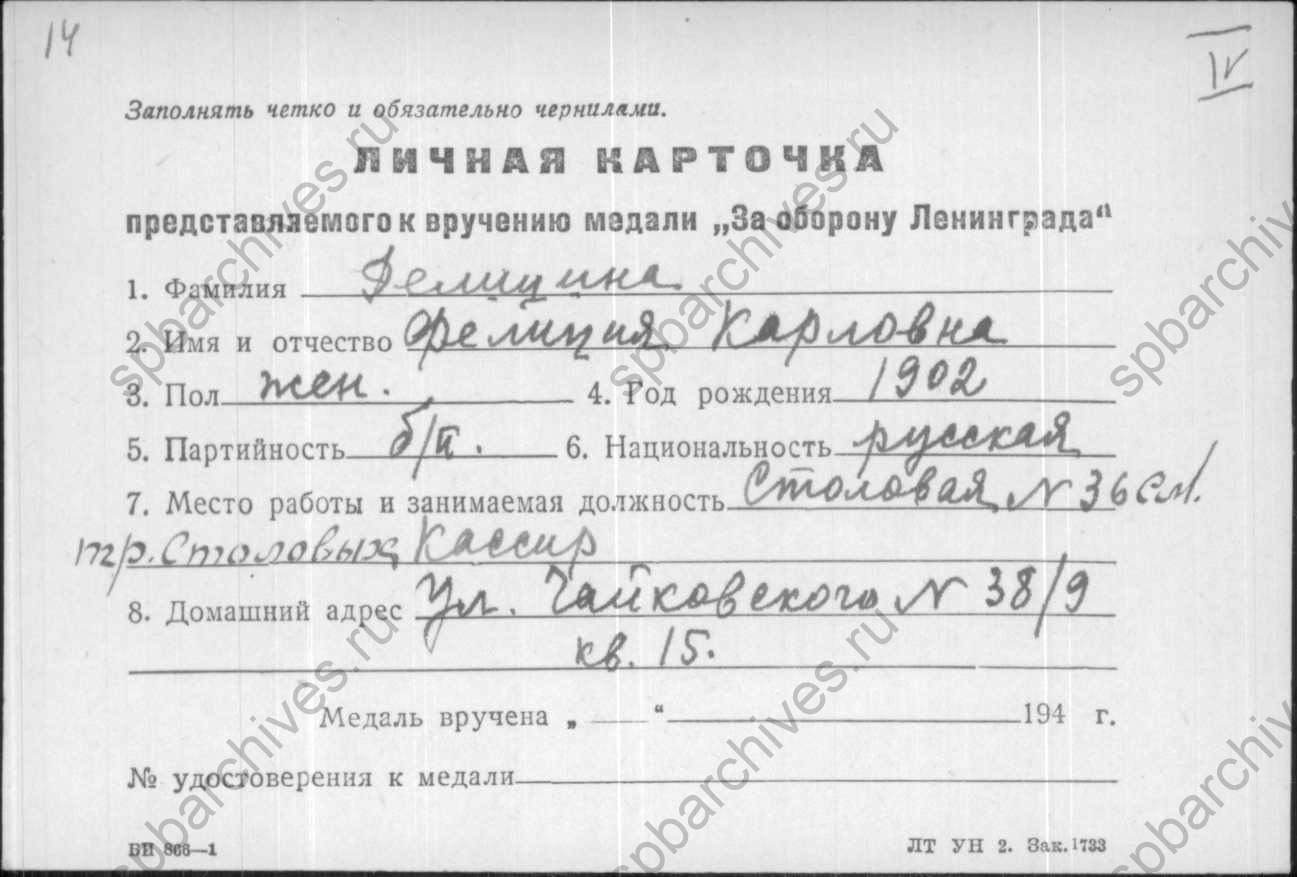 14
IV
Заполнять четко и обязательно чернилами.
ЛИЧНАЯ КАРТОЧКА
представляемого к вручению медали „За оборону Ленинграда“
1. Фамилия
2. Имя и отчество Фелиция Карловна
3. Пол жен. 4. Год рождения 1902
5. Партийность б/п. 6. Национальность русская
7. Место работы и занимаемая должность Столовая № 36 См.
тр. Столовых Кассир
8. Домашний адрес Ул. Чайковского № 38/9
кв. 15.
Медаль вручена „ “ 194 г.
№ удостоверения к медали
БИ 866—1
ЛТ УН 2. Зак. 1733
spbarchives.ru
spbarchives.ru
spbarchives.ru
spbarchives.ru